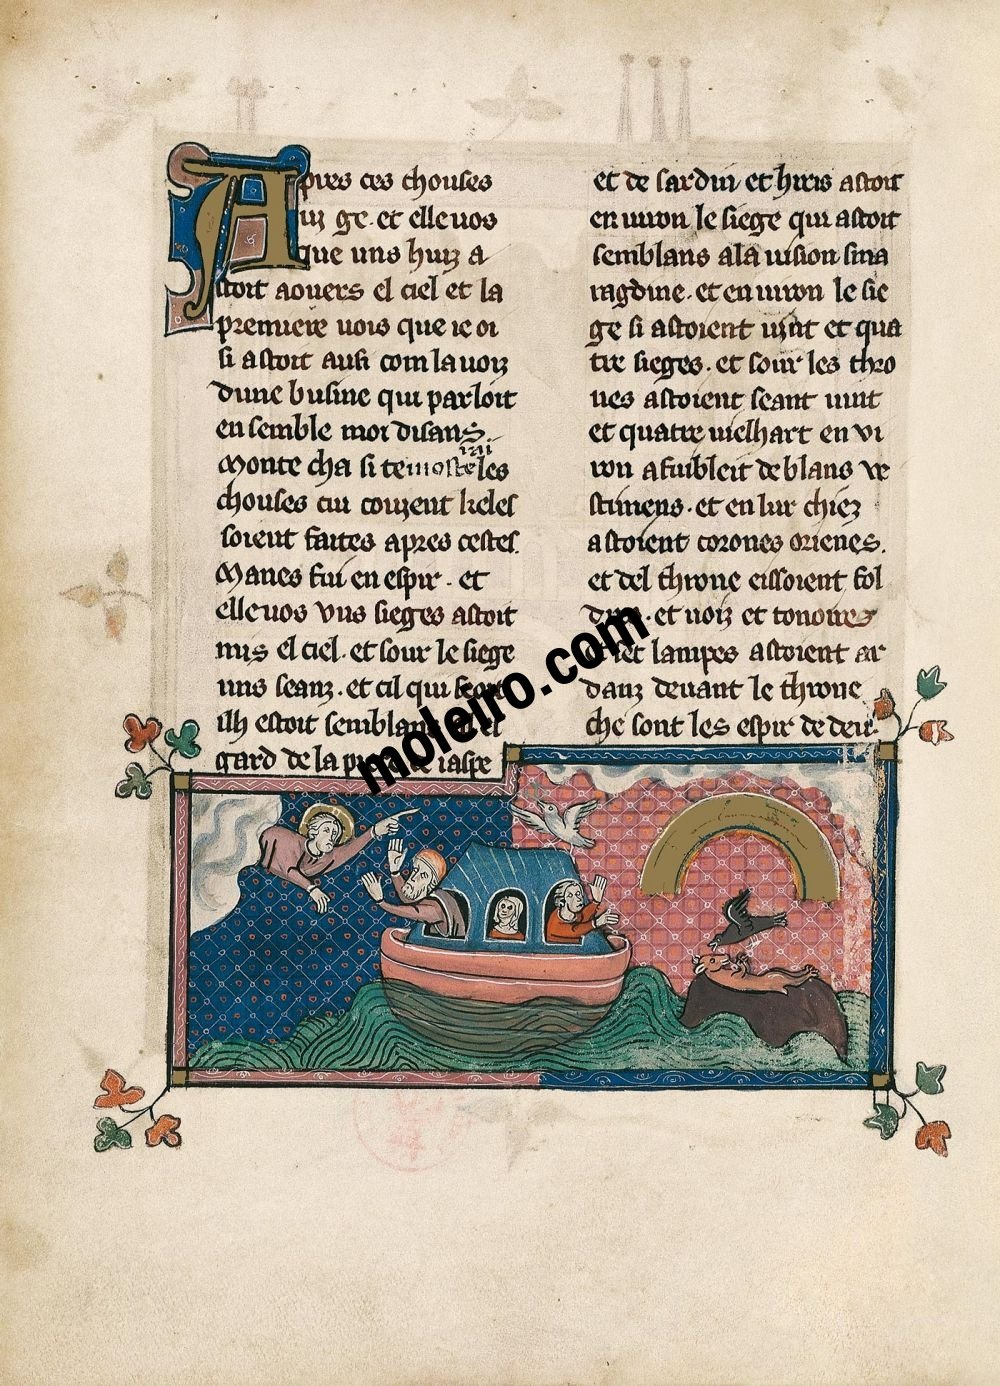 Apres ces chouses
uiz ge. et elle uos
que uns huiz a
stoit aouers el ciel et la
premiere uois que ie oi
si astoit ausi com la uoiz
dune busine qui parloit
en semble moi disans.
Monte cha si te mosterai les
chouses cui couzent keles
soient faites apres cestes.
Manes fui en espir. et
elle uos vns sieges astoit
mis el ciel. et sour le siege
uns seanz. et cil qui seoit
ilh estoit semblans al el
gard de la piere de iaspe
et de sardin et hiris astoit
en uiron le siege qui astoit
semblans a la uision sma
ragdine. et en uiron le sie
ge si astoient uint et qua
tre sieges. et sour les thro
nes astoient seant uint
et quatre uielhart en vi
ron afuibleit de blans ve
stimens. et en lur chiez
astoient corones orienes.
et del throne eissoient fol
dres. et uoiz et tonoires
et set lampes astoient ar
danz deuant le throne
che sont les espir de deu.
moleiro.com